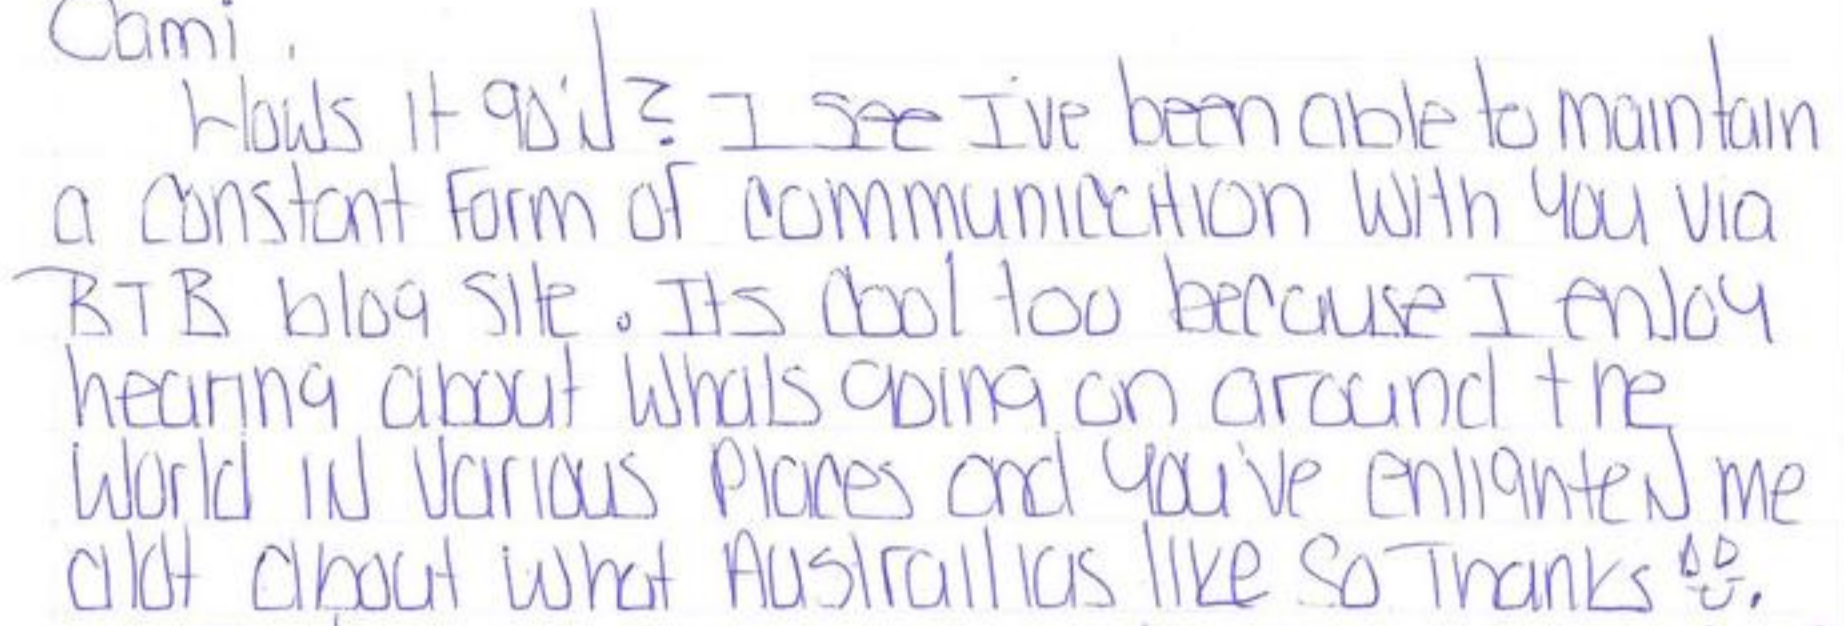 Cami,
Hows it goin? I see I've been able to maintain
a constant form of communication with you via
BTB blog site. Its cool too because I enjoy
hearing about whats going on around the
world in various places and you've enlighten me
alot about what Australlias like so Thanks